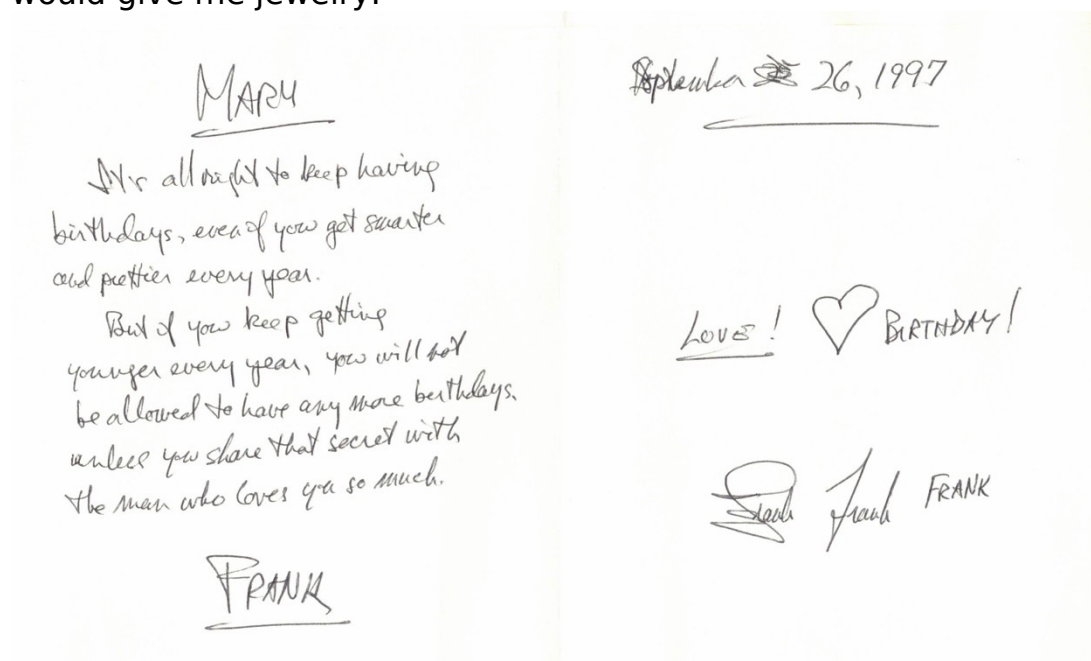 would give me jewelry.
MARY
It's all right to keep having
birthdays, even if you get smarter
and prettier every year.
But if you keep getting
younger every year, you will not
be allowed to have any more birthdays,
unless you share that secret with
the man who loves you so much.
FRANK
September 26, 1997
LOVE! BIRTHDAY!
Frank Frank FRANK